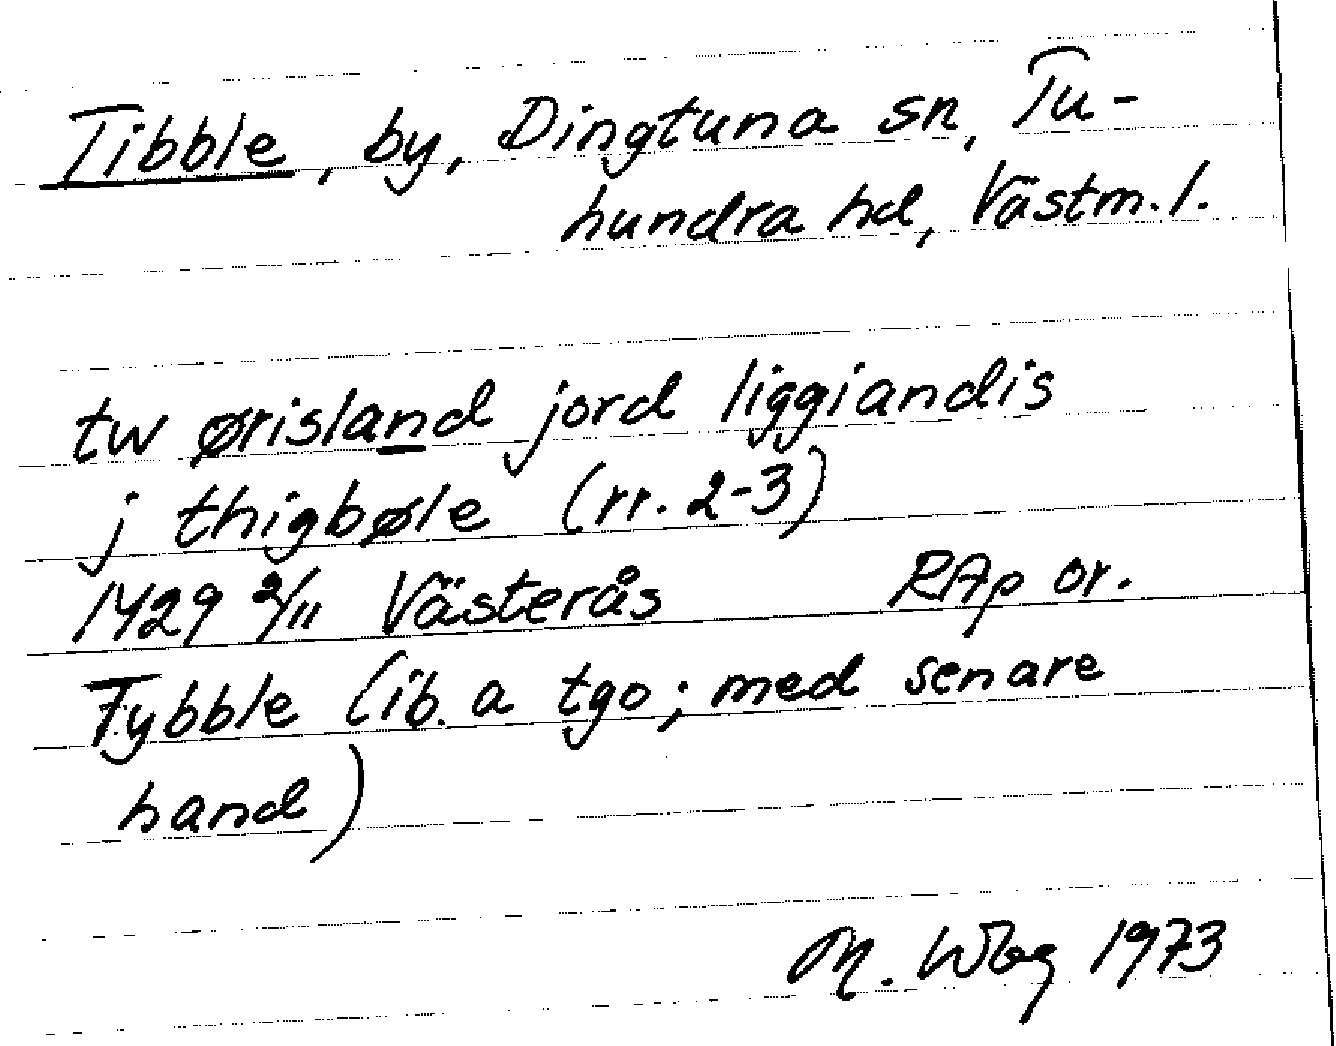 Tibble, by, Dingtuna sn, Tu-
hundra hd, Västm. l.
tw ørisland jord liggiandis
j thigbøle (rr. 2-3)
1429 2/11 Västerås RAp or.
Tybble (ib. a tgo; med senare
hand)
M. Wbg 1973